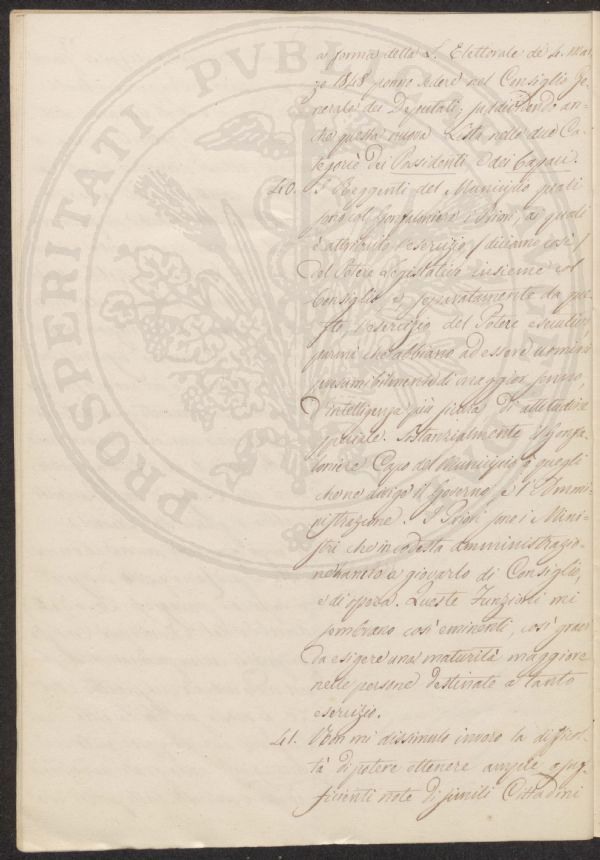 a forma della L. Elettorale de' 4. Mar
zo 1848 ponno sedere nel Consiglio Ge
nerale dei Deputati; suddividendo an-
che questa nuova Lista nelle due Ca
tegorie dei Possidenti e dei Capaci.
40. I Reggenti del Municipio quali
sono col Gonfaloniere i Priori, ai quali
è attribuito l'esercizio (diciamo così)
del Potere Legislativo insieme col
Consiglio, e separatamente da que
sto, l'esercizio del Potere esecutivo,
parmi che abbiano ad essere uomini
presumibilmente di maggior senno,
d'intelligenza più sicura, di attitudine
speciale. Sostanzialmente il Gonfa
loniere Capo del Municipio è quegli
che ne dirige il Governo e l'Ammi
nistrazione. I Priori sono i Mini-
stri che in codesta amministrazio-
ne hanno a giovarlo di Consiglio,
e di opera. Queste Funzioni mi
sembrano così eminenti, così gravi
da esigere una maturità maggiore
nelle persone destinate a tanto
esercizio.
41. Non mi dissimulo invero la difficol
tà di potere ottenere ampie e suf
ficienti note di simili Cittadini
PROSPERITATI PUBLICAE